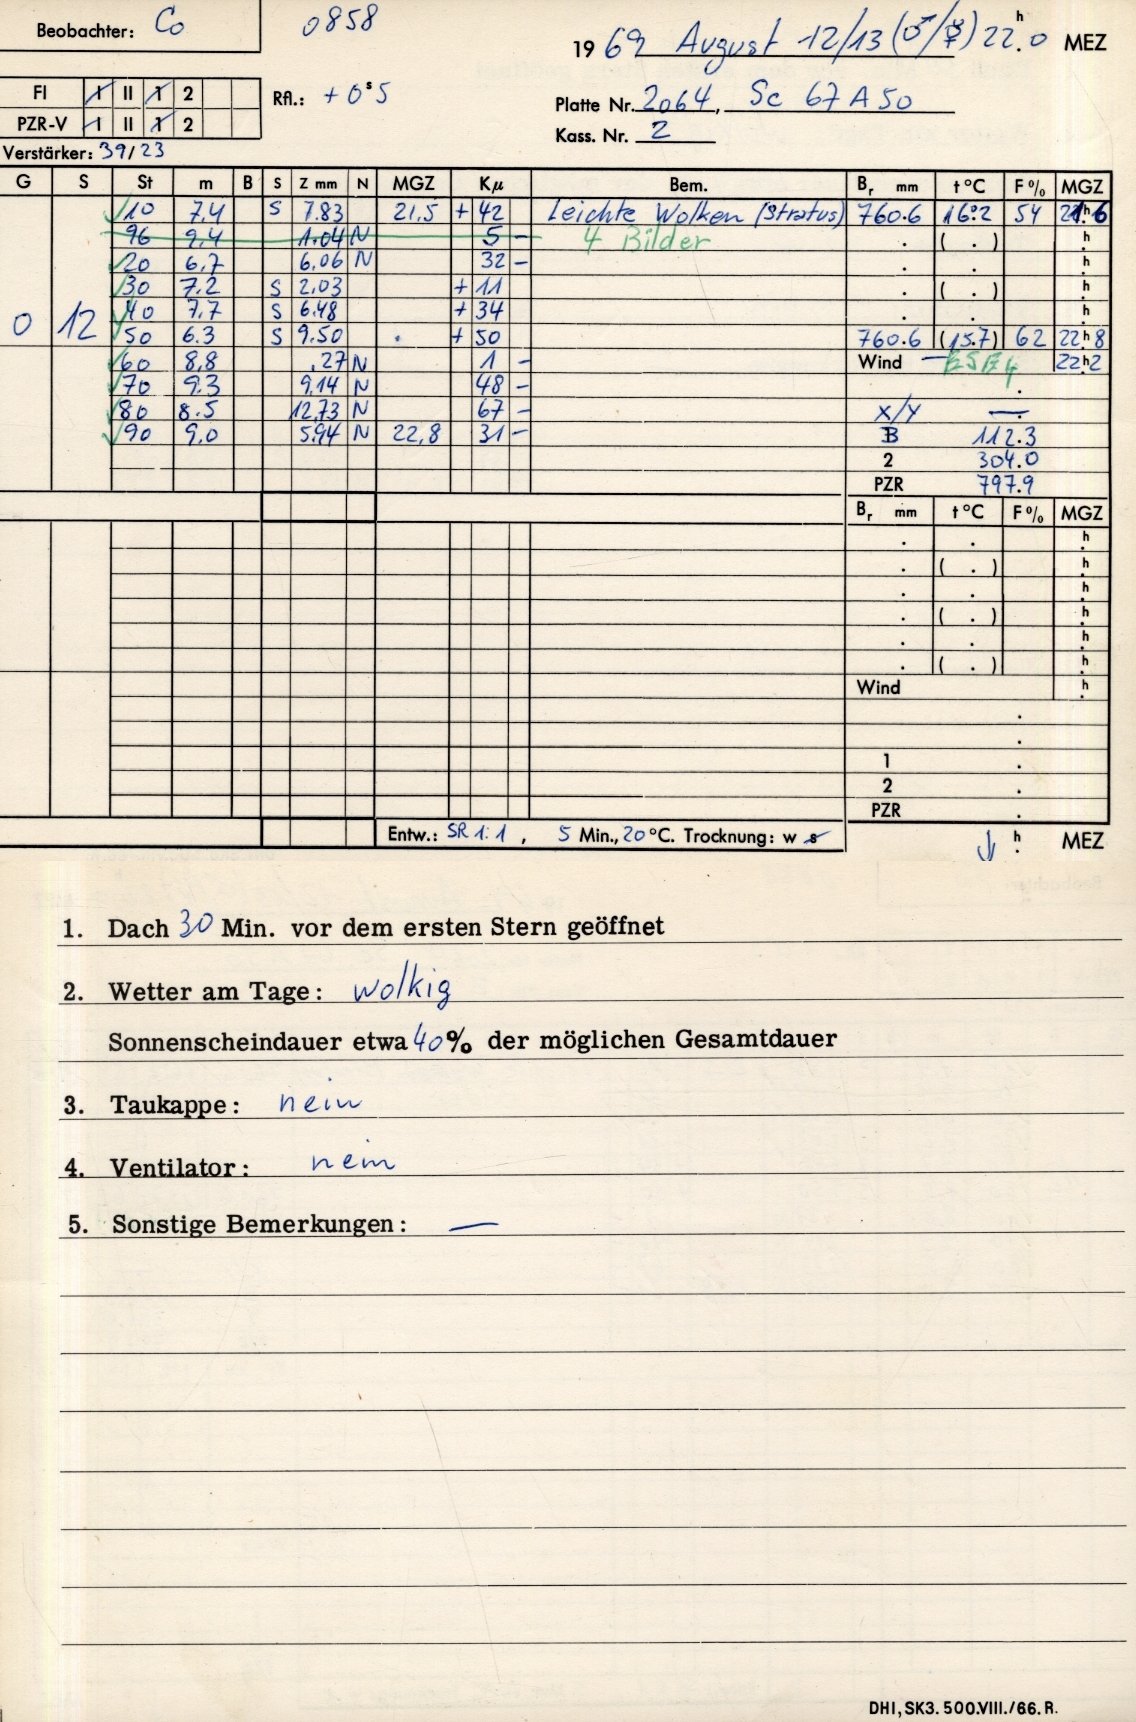 Beobachter: Co
0858
1969 August 12/13 (♂/☿) 22.h0 MEZ
FI I II 1 2
PZR-V I II 1 2
Rfl.: +0.s5
Platte Nr. 2064, Sc 67 A 50
Kass. Nr. 2
Verstärker: 39/23
G S St m B S Z mm N MGZ Kμ Bem. Br mm t°C F% MGZ
10 7.4 S 7.83 21,5 + 42 Leichte Wolken (Stratus) 760.6 16.2 54 21.h6
96 9.4 1.04 N 5 - 4 Bilder . ( . ) h
20 6.7 6.06 N 32 - . . h
30 7.2 S 2.03 + 11 . ( . ) h
40 7.7 S 6.48 + 34 . . h
0 12 50 6.3 S 9.50 . + 50 760.6 (15.7) 62 22.h8
60 8.8 .27 N 1 - Wind ESE 4 22.h2
70 9.3 9.14 N 48 - .
80 8.5 12.73 N 67 - X/Y —.
90 9.0 5.94 N 22,8 31 - B 112.3
2 304.0
PZR 797.9
Br mm t°C F% MGZ
. . h
. ( . ) h
. . h
. ( . ) h
. . h
. ( . ) h
Wind h
.
.
1 .
2 .
PZR .
Entw.: SR 1:1, 5 Min., 20 °C. Trocknung: w s
h MEZ
1. Dach 30 Min. vor dem ersten Stern geöffnet
2. Wetter am Tage: wolkig
Sonnenscheindauer etwa 40% der möglichen Gesamtdauer
3. Taukappe: nein
4. Ventilator: nein
5. Sonstige Bemerkungen: —
DHI, SK3. 500.VIII./66. R.